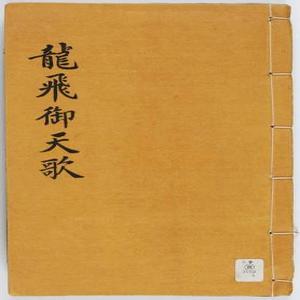 龍飛御天歌